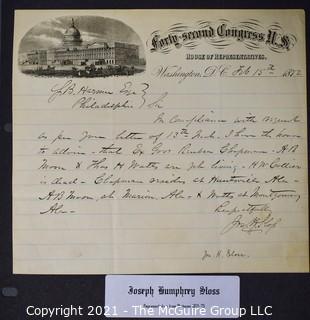 Forty-second Congress U.S.
HOUSE OF REPRESENTATIVES.
Washington, D.C. Feb 15th 1872
J. B. Harmer Esqr
Philadelphia Sir
In compliance with request
as per your letter of 13th Inst. I have the honor
to advise - that Ex Gov Reuben Chapman - A B
Moore & Thos H Watts are yet living - H W Collier
is dead - Chapman resides at Huntsville Ala -
A B Moore, at Marion, Ala - & Watts at Montgomery
Ala -
Respectfully
Jos H Sloss
Jos. H. Sloss.
Joseph Humphrey Sloss
Copyright © 2021 - The MCGUIRE GROUP LLC